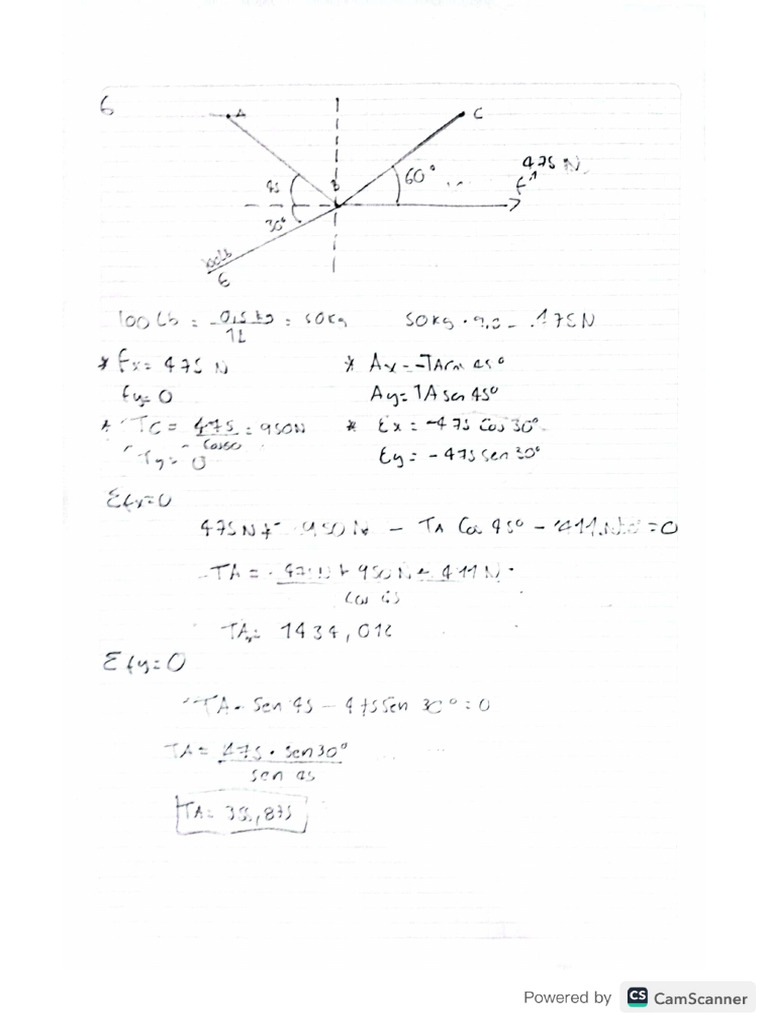 6
A
C
475 N
45 B 60°
F
30°
100Lb
E
100 Lb = 0,5 kg = 50kg 50kg . 9,5 = 475N
1L
* Fx = 475 N * Ax = -TA 45°
Fy = 0 Ay = TA sen 45°
* TC = 475 = 950N * Ex = -475 Cos 30°
Cos60
Ty = 0 Ey = -475 sen 30°
Σfx=0
475N + 950N - TA Cos 45° - 411 = 0
TA = 475N + 950N 411 N
Cos 45
TA = 1434,01
Σfy=0
TA . Sen 45 - 475 Sen 30° = 0
TA = 475 . sen30°
sen 45
TA= 335,875
Powered by CS CamScanner